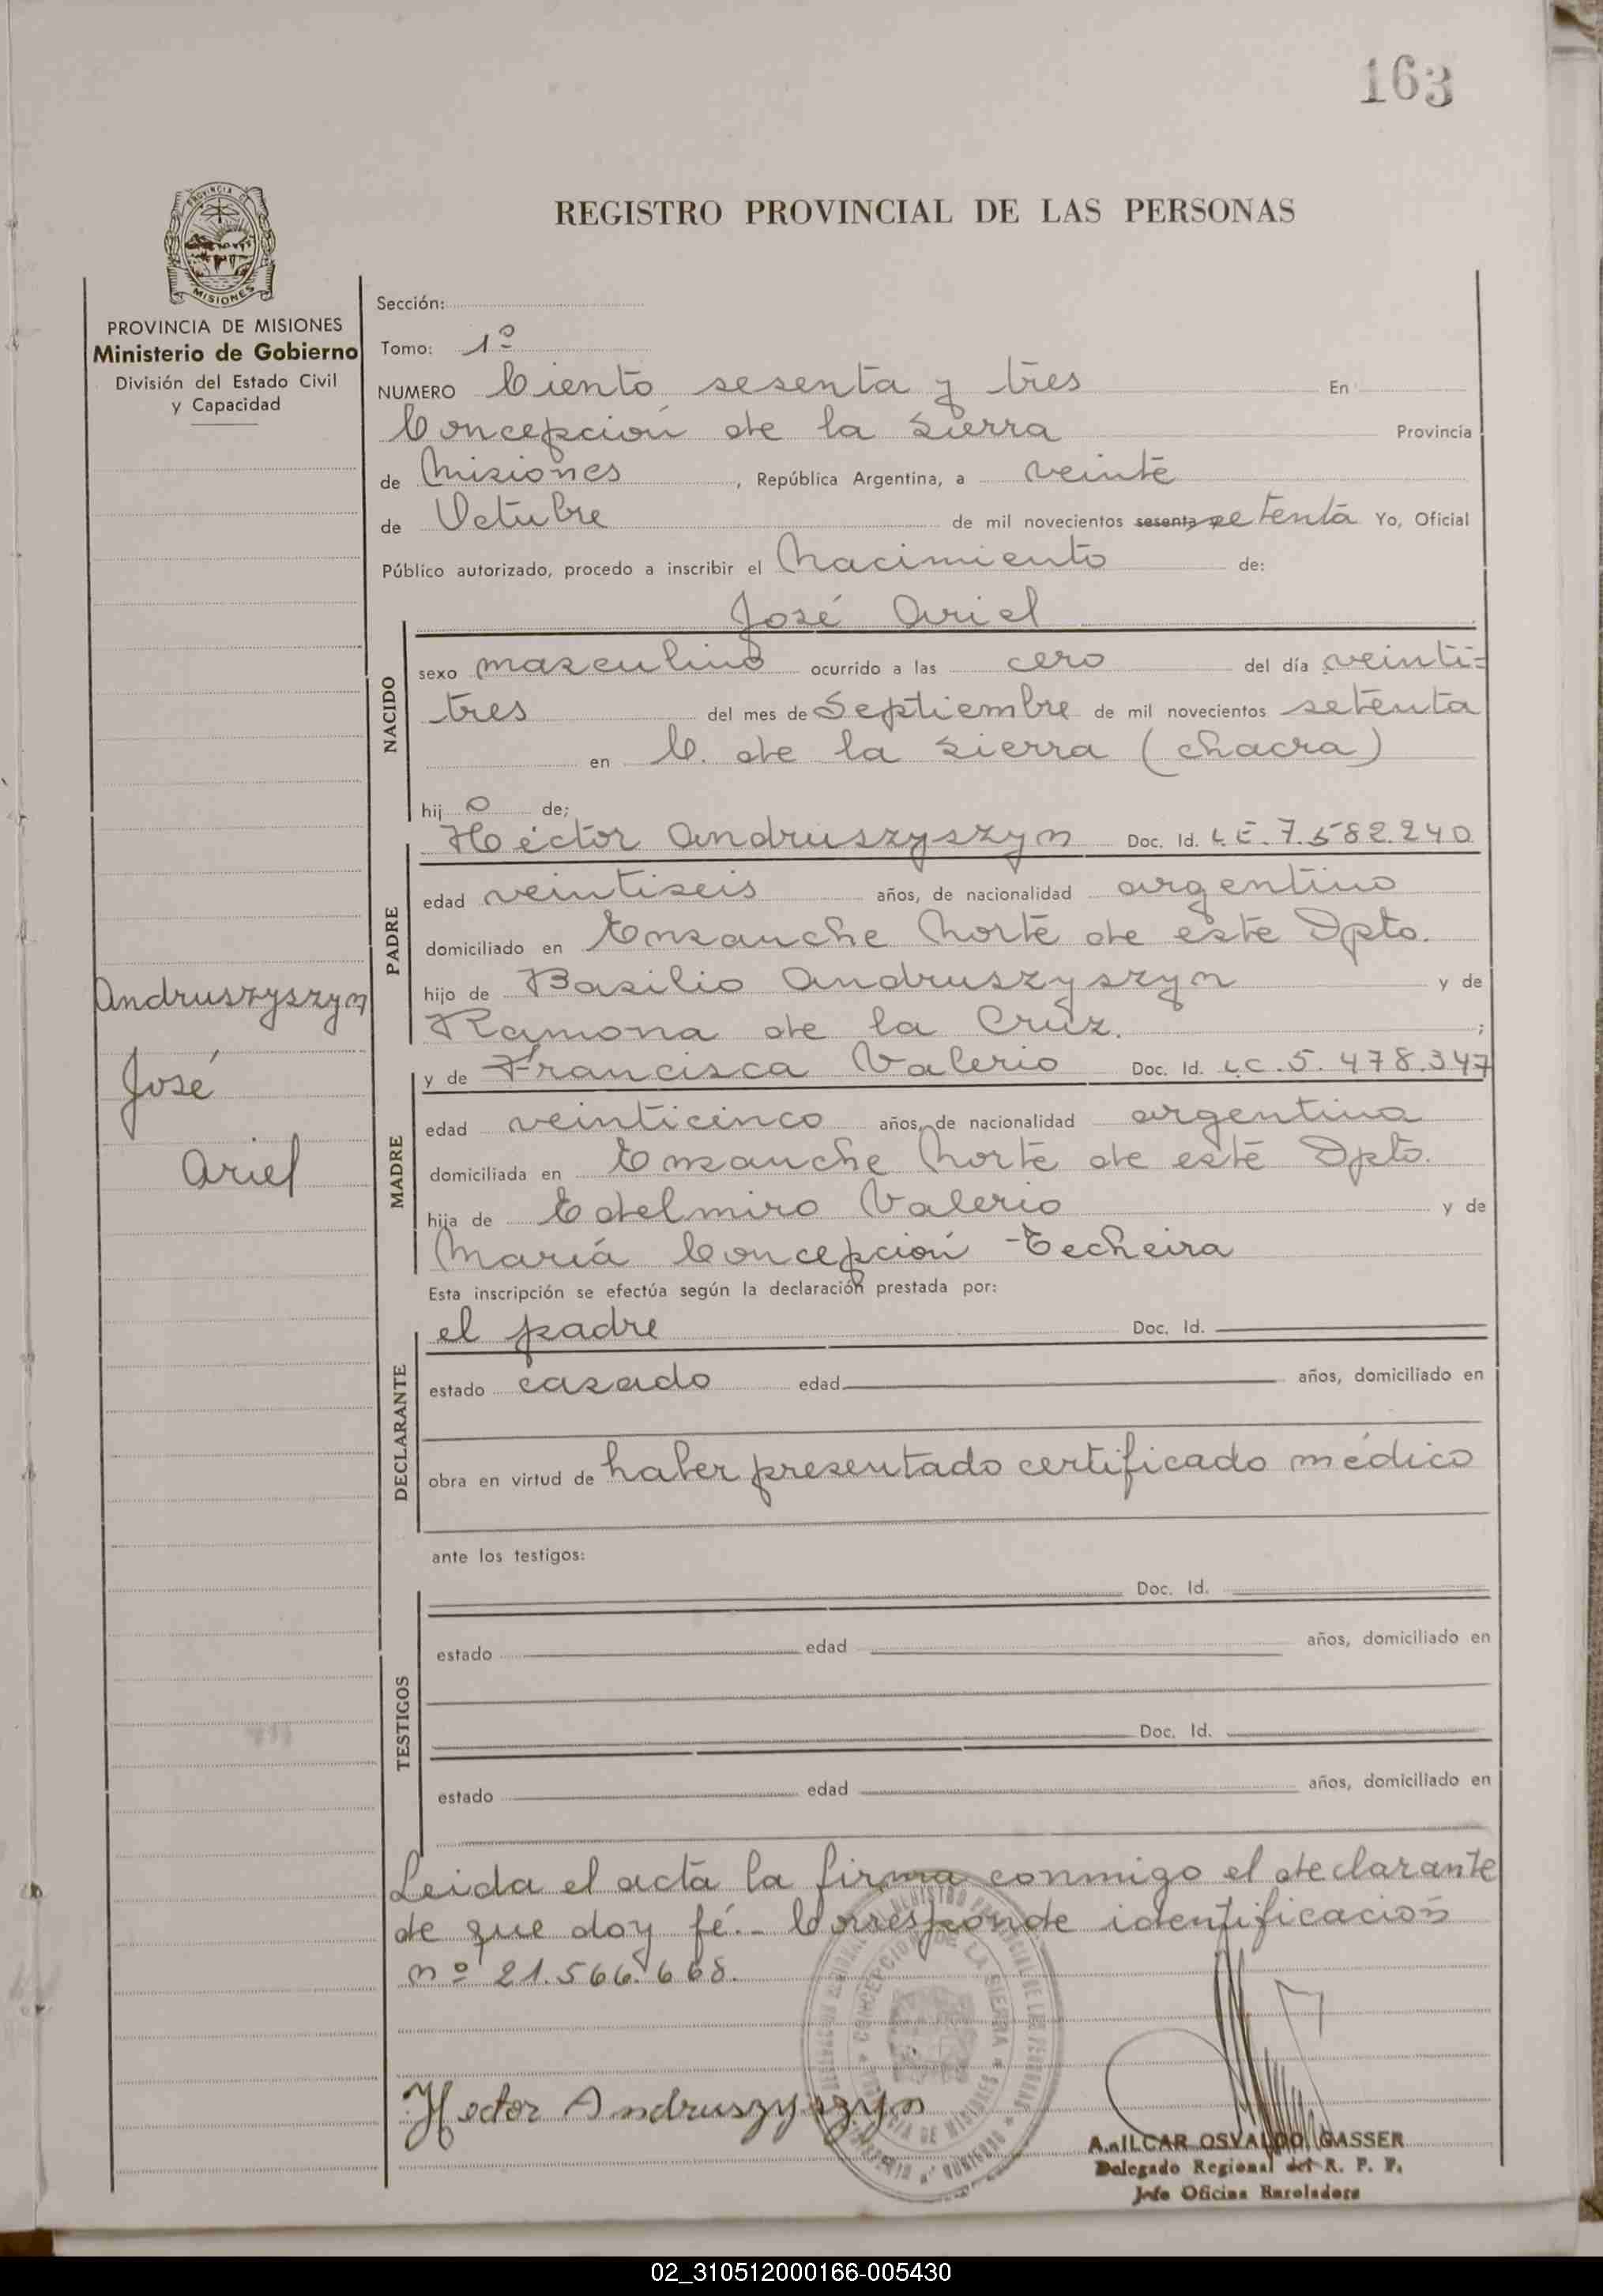 163
PROVINCIA DE MISIONES
REGISTRO PROVINCIAL DE LAS PERSONAS
PROVINCIA DE MISIONES
Ministerio de Gobierno
División del Estado Civil
y Capacidad
Andruszyszyn
José
Ariel
Sección:
Tomo: 1º
NUMERO Ciento sesenta y tres En
Concepción de la Sierra Provincia
de Misiones, República Argentina, a veinte
de Octubre de mil novecientos sesenta setenta Yo, Oficial
Público autorizado, procedo a inscribir el Nacimiento de:
José Ariel
NACIDO
sexo masculino ocurrido a las cero del día veinti=
tres del mes de Septiembre de mil novecientos setenta
en C. de la Sierra (chacra)
hij o de;
PADRE
Héctor Andruszyszyn Doc. Id. L.E. 7.582.240
edad veintiseis años, de nacionalidad argentino
domiciliado en Ensanche Norte de este Dpto.
hijo de Basilio Andruszyszyn y de
Ramona de la Cruz. ;
MADRE
y de Francisca Valerio Doc. Id. L.C. 5.478.347
edad veinticinco años, de nacionalidad argentina
domiciliada en Ensanche Norte de este Dpto.
hija de Edelmiro Valerio y de
María Concepción Techeira
Esta inscripción se efectúa según la declaración prestada por:
DECLARANTE
el padre Doc. Id.
estado casado edad años, domiciliado en
obra en virtud de haber presentado certificado médico
ante los testigos:
TESTIGOS
Doc. Id.
estado edad años, domiciliado en
Doc. Id.
estado edad años, domiciliado en
Leida el acta la firma conmigo el declarante
de que doy fé.- Corresponde identificación
nº 21.566.668.
CONCEPCION DE LA SIERRA
Hector Andruszyszyn
OSVALDO GASSER
Delegado Regional del R. P. P.
Jefe Oficina Enroladora
02_310512000166-005430